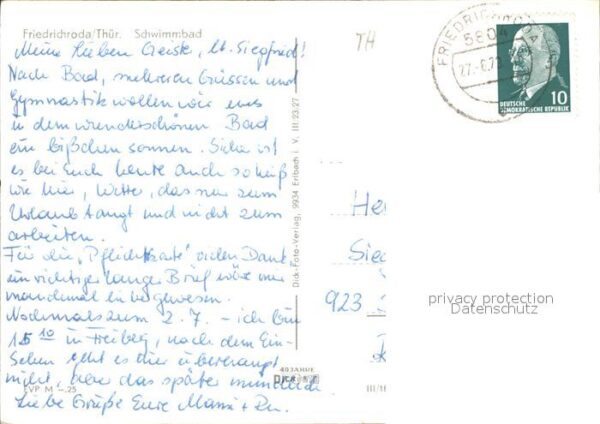 Friedrichroda/Thür. Schwimmbad
Meine lieben Geisk, lb. Siegfried!
Nach Bad, mehreren Güssen und
Gymnastik wollen wir uns
in dem wunderschönen Bad
ein bißchen sonnen. Sicher ist
es bei Euch heute auch so heiß
wie hier, Wetter, das nur zum
Urlaub taugt und nicht zum
arbeiten.
Für die „Pflichtkarte" vielen Dank
ein richtiger langer Brief wäre mir
manchmal lieber gewesen.
Nochmals zum 2.7. - ich bin
15 10 in Freiberg, nach dem Ein-
sehen geht es hier überhaupt
nicht, aber das später mündlich
Liebe Grüße Eure Mami +
EVP M -.25
40 JAHRE
Dick-Foto-Verlag, 9934 Erlbach i. V. III 23.27
TH
FRIEDRICHRODA
5804
27.-6.70
DEUTSCHE
DEMOKRATISCHE REPUBLIK
10
He
Sie
923
privacy protection
Datenschutz